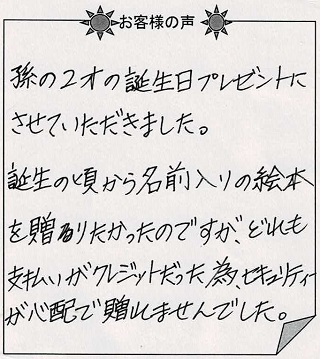 お客様の声
孫の2才の誕生日プレゼントに
させていただきました。
誕生の頃から名前入りの絵本
を贈りたかったのですが、どれも
支払いがクレジットだった為、セキュリティー
が心配で贈れませんでした。